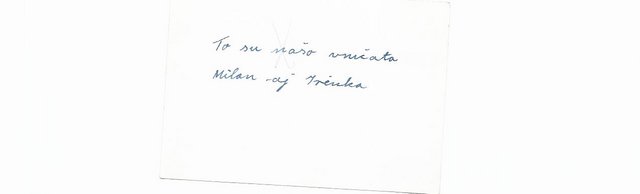 To su našo vnúčata
Milan aj Irénka